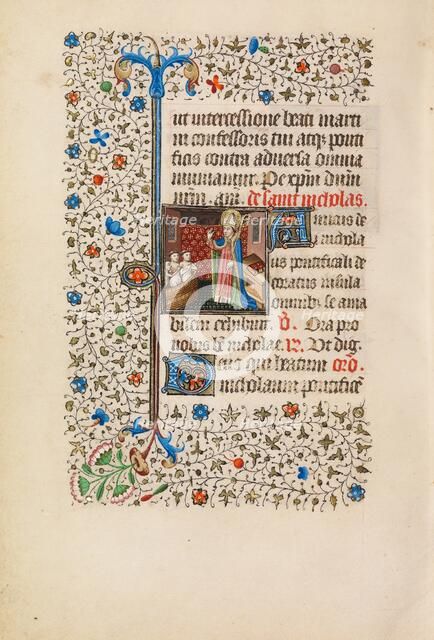 ut intercessione beati marti
ni confessoris tui atq3 ponti
ficis contra adversa omnia
muniamur. Per xpm dnm
nrm. am. de saint nicholas.
Amicus de
i nichola
us pontificali de
coratus insula
omnibus se ama
bilem exhibuit. V. Ora pro
nobis be nicholae. R. Ut dig
Deus qui beatum oro.
nicholaum pontifice
Heritage
Heritage
Heritage